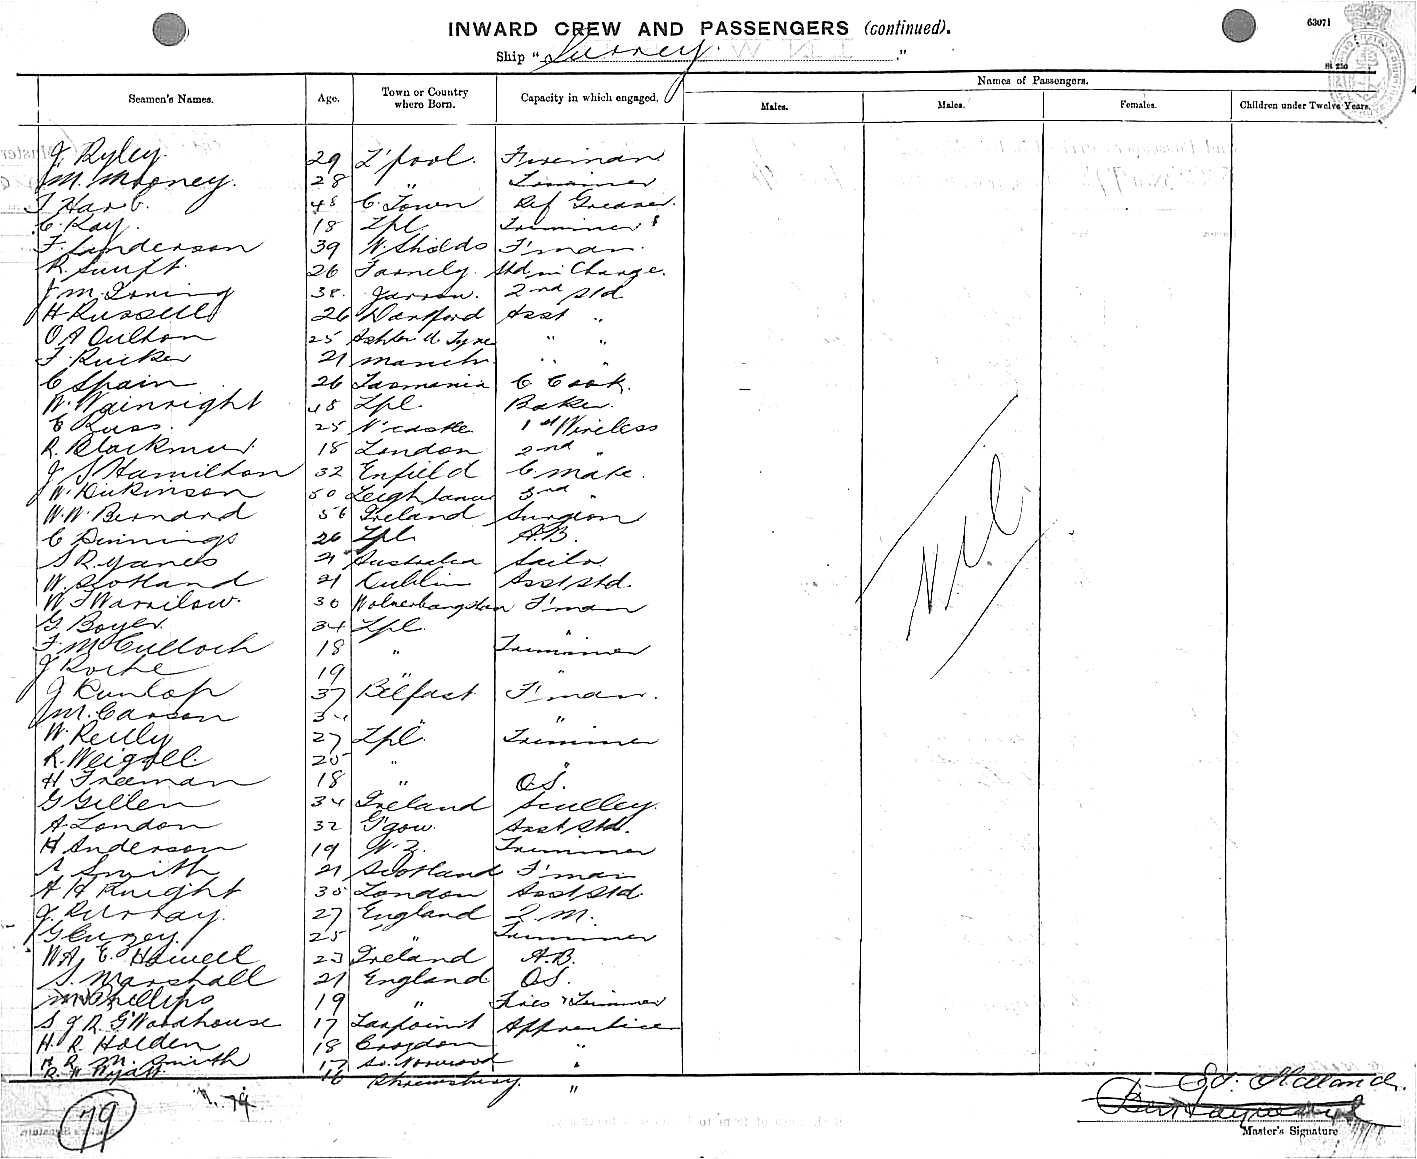 INWARD CREW AND PASSENGERS (continued).
63071
Ship "Surrey."
Seamen's Names. Age. Town or Country where Born. Capacity in which engaged. Names of Passengers.
Males. Males. Females. Children under Twelve Years.
J. Ryley 29 L'pool. Fireman
M. Mooney. 28 " Trimmer
T Har 48 C. Town Ref Greaser.
C. Kay. 18 Lpl. Trimmer
F. Sanderson 39 W Shields F'man.
R. Swift. 26 Farnely. Std in Charge.
J M. Loring 38. Jarrow. 2nd Std
H Russell 26 Dartford Asst "
O A Oulton 25 Ashton U Tyne " "
F Rucker 21 Manch. " "
C Spain 26 Tasmania C Cook.
W. Wainright 48 Lpl. Baker.
C Russ. 25 N'castle 1st Wireless
R. Blackmur 18 London 2nd "
J S Hamilton 32 Enfield C mate.
W. Dickinson 50 Leigh Lancs 3rd "
W. W. Bernard 56 Ireland Surgeon
C Dennings 26 Lpl. A.B.
S R. Yanes 21 Australia Sailor
W. Scotland 21 Dublin Asst Std.
W T Warrilow. 30 Wolverhampton F'man
G. Boyer. 34 Lpl. "
F. McCulloch 18 " Trimmer
J Roche 19 " "
J Dunlop 37 Belfast F'man.
J M. Carson 34 " "
W. Reilly 27 Lpl. Trimmer
R. Weigall. 25 " "
H Freeman 18 " O.S.
G Gillen 34 Ireland Sculley.
A. London 32 G'gow. Asst Std.
H Anderson 19 N. Z. Trimmer
A Smith 21 Scotland F'man
A H Knight 35 London Asst Std
J. Murray. 27 England 2 M.
G 25 " Trimmer
W A. E. Howell 23 Ireland A.B.
S. Marshall 21 England O.S.
M Phillips 19 " Fires & Trimmer
S J R. G Woodhouse 17 Torpoint Apprentice
H. R. Holden 18 Croydon "
H R M. Smith 17 So. Norwood "
R. W Wyatt 16 Shrewsbury "
Nil
79
79
Ed. Holland.
Master's Signature